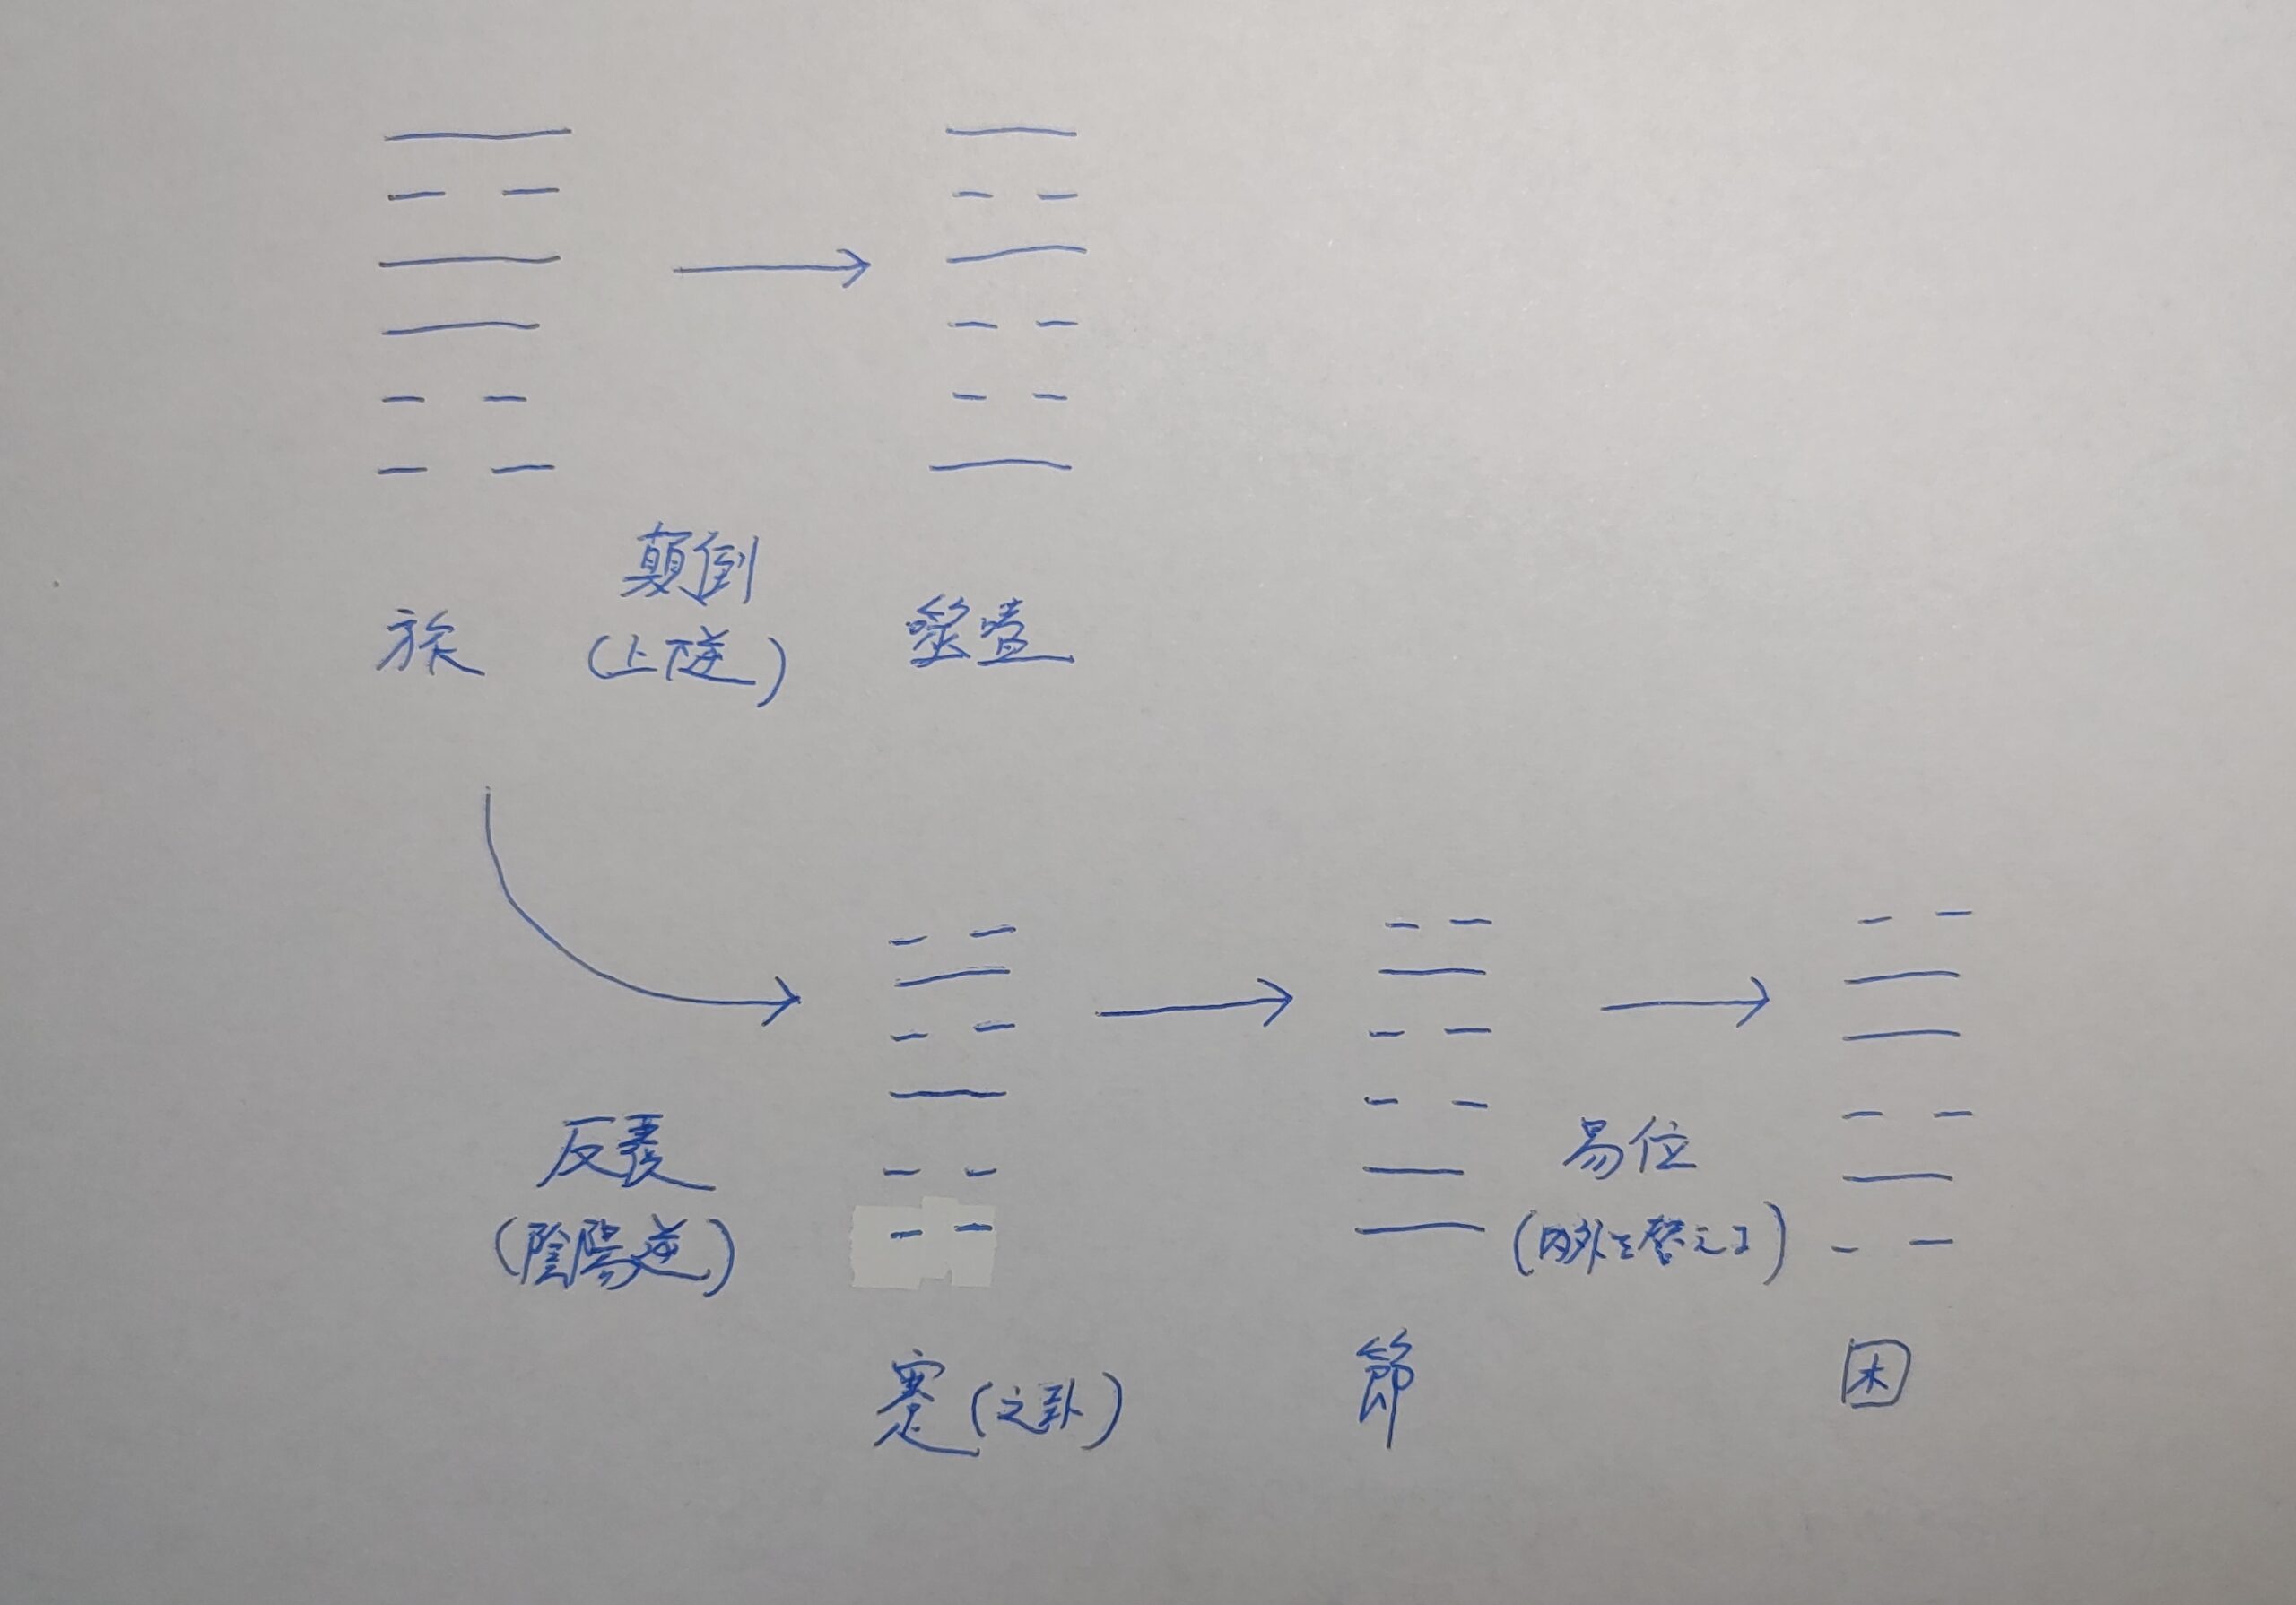 旅
顛倒
(上下逆)
噬嗑
反覆
(陰陽逆)
蹇(之卦)
節
易位
(内外を替える)
困